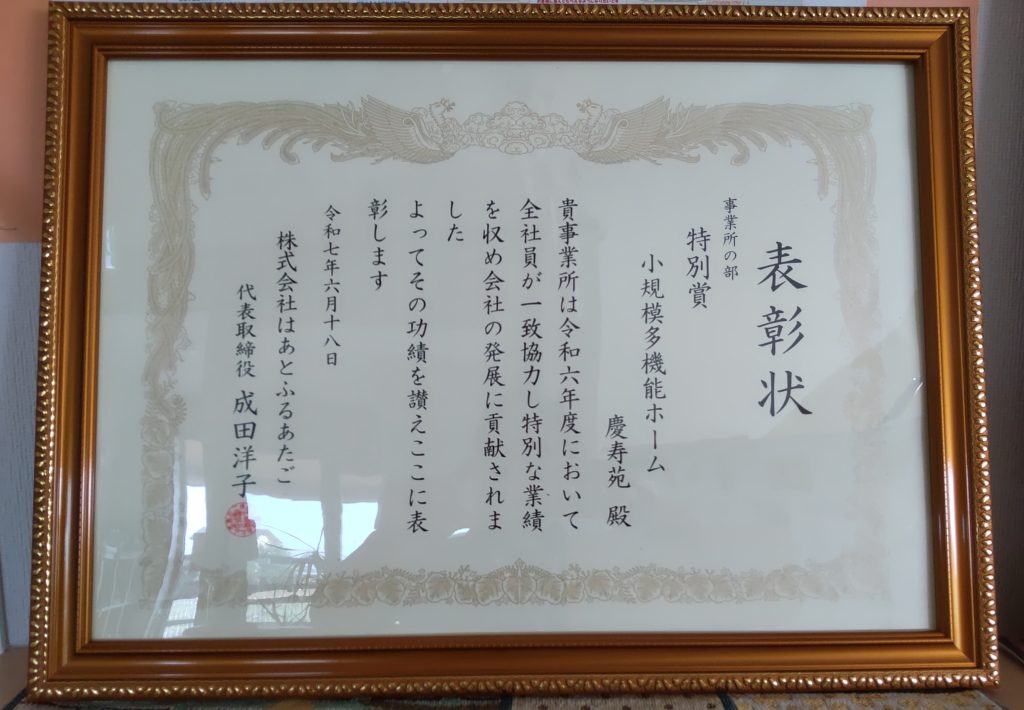 表彰状
事業所の部
特別賞
小規模多機能ホーム
慶寿苑 殿
貴事業所は令和六年度において
全社員が一致協力し特別な業績
を収め会社の発展に貢献されま
した
よってその功績を讃えここに表
彰します
令和七年六月十八日
株式会社はあとふるあたご
代表取締役 成田洋子